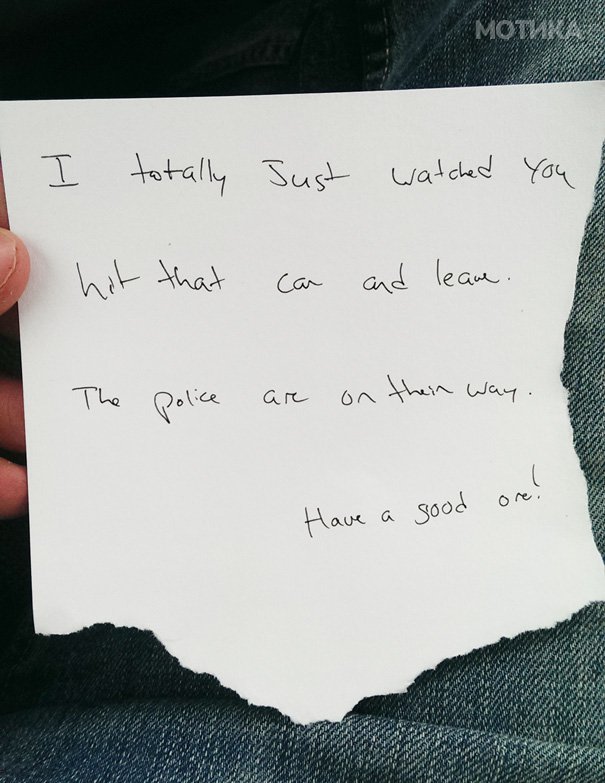 МОТИКА
I totally Just watched you
hit that car and leave.
The police are on their way.
Have a good one!